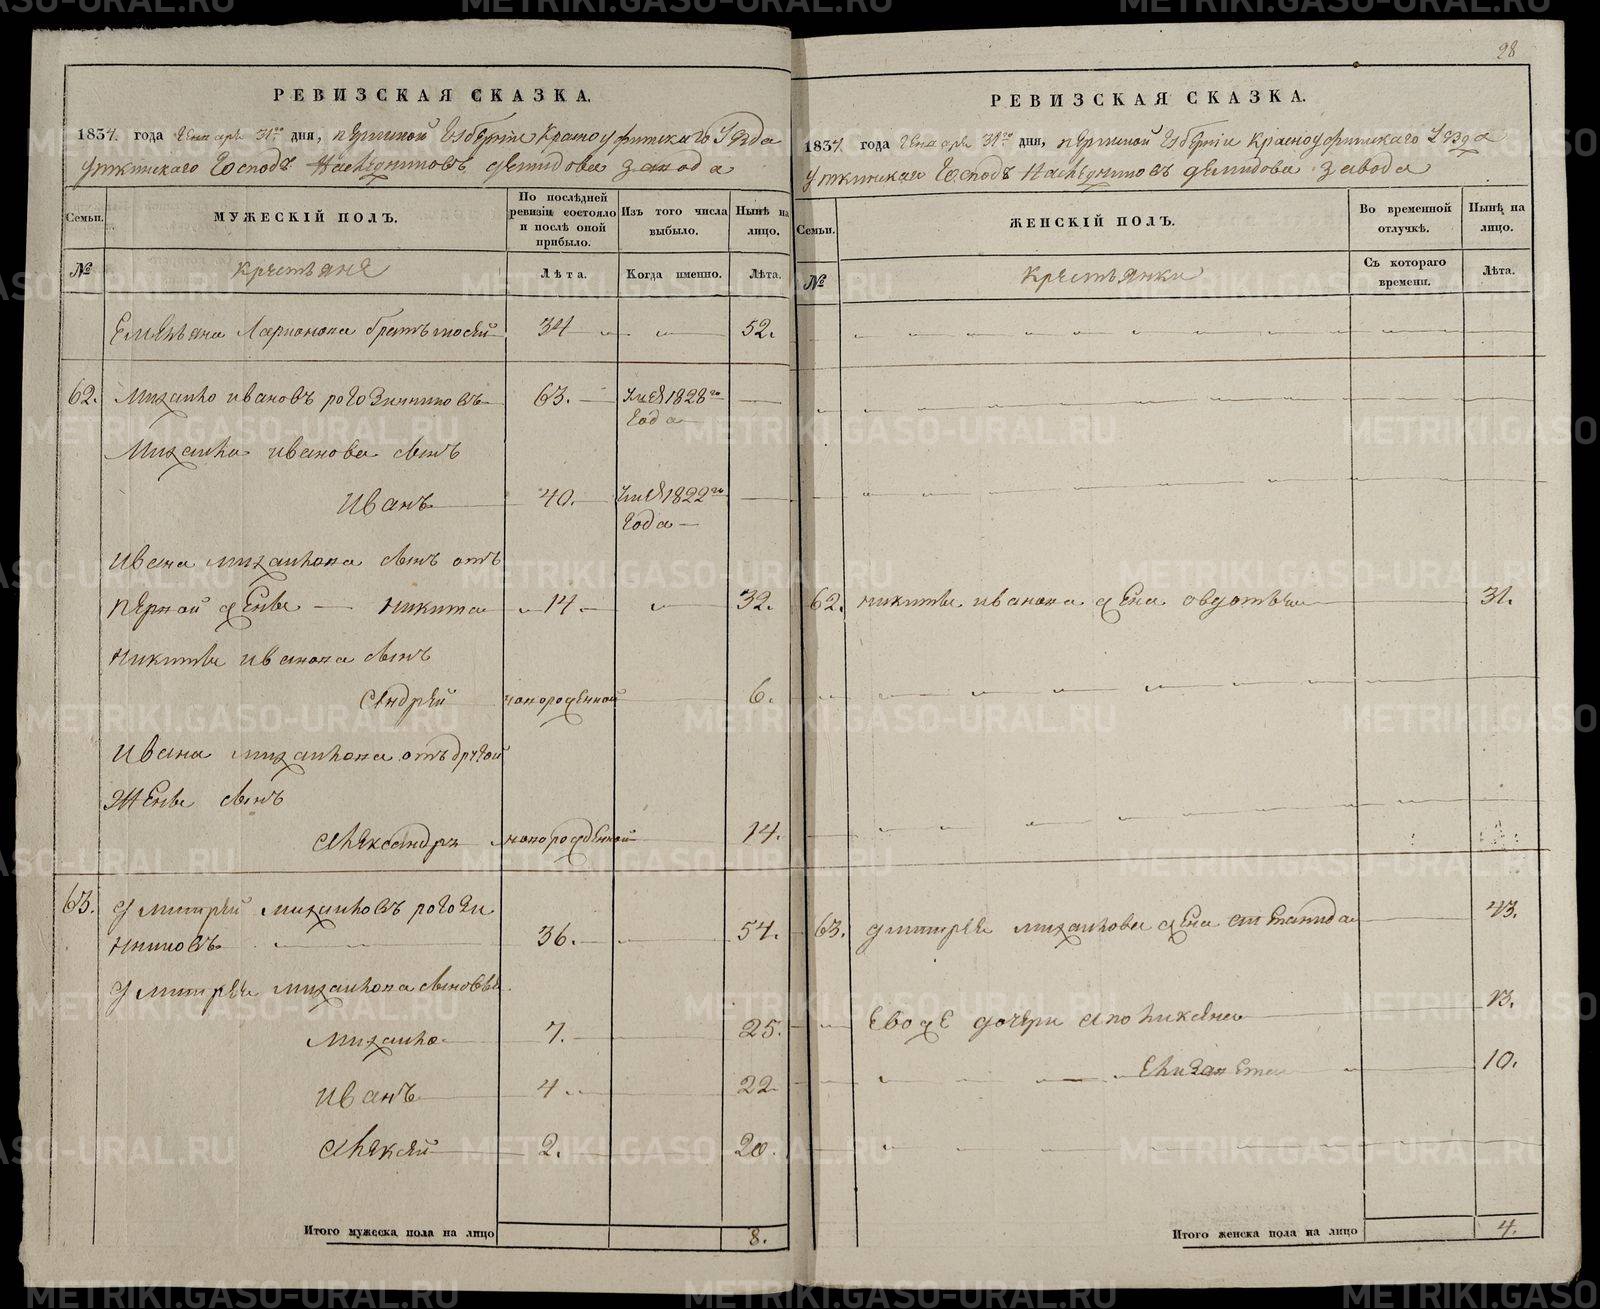 28
РЕВИЗСКАЯ СКАЗКА.
1834. года Генваря 31го дня, Пермской Губернiи Красноуфимскаго Уезда
Уткинскаго Господъ Наследниковъ Демидова завода
Семьи.
МУЖЕСКIЙ ПОЛЪ.
По послѣдней ревизiи состояло и послѣ оной прибыло.
Изъ того числа выбыло.
Нынѣ на лицо.
№
Крестьяне
Лѣта.
Когда именно.
Лѣта.
Емельяна Ларионова братъ 34 52.
62. Михайло Ивановъ Рогозинниковъ 63. Умеръ 1828го
года
Михайла Иванова сынъ
Иванъ 40. Умеръ 1822го
года
Ивана Михайлова сынъ отъ
первой жены Никита 14. 32.
Никиты Иванова сынъ
Андрей новорожденной 6.
Ивана Михайлова отъ другой
жены сынъ
Александръ новорожденной 14.
63. Дмитрей Михайловъ Рогози
нниковъ 36. 54.
Дмитрея Михайлова сыновья
Михайло 7. 25.
Иванъ 4 22
Алексей 2. 20.
Итого мужеска пола на лицо 8.
РЕВИЗСКАЯ СКАЗКА.
1834. года Генваря 31го дня, Пермской Губернiи Красноуфимскаго Уезда
Уткинскаго Господъ Наследниковъ Демидова завода
Семьи.
ЖЕНСКIЙ ПОЛЪ.
Во временной отлучкѣ.
Нынѣ на лицо.
№
Крестьянки
Съ котораго времени.
Лѣта.
62. Никиты Иванова жена Овдотья 31.
63. Дмитрея Михайлова жена Степанида 43.
Евоже дочери Аполинария 13.
Елизавета 10.
Итого женска пола на лицо 4.
METRIKI.GASO-URAL.RU